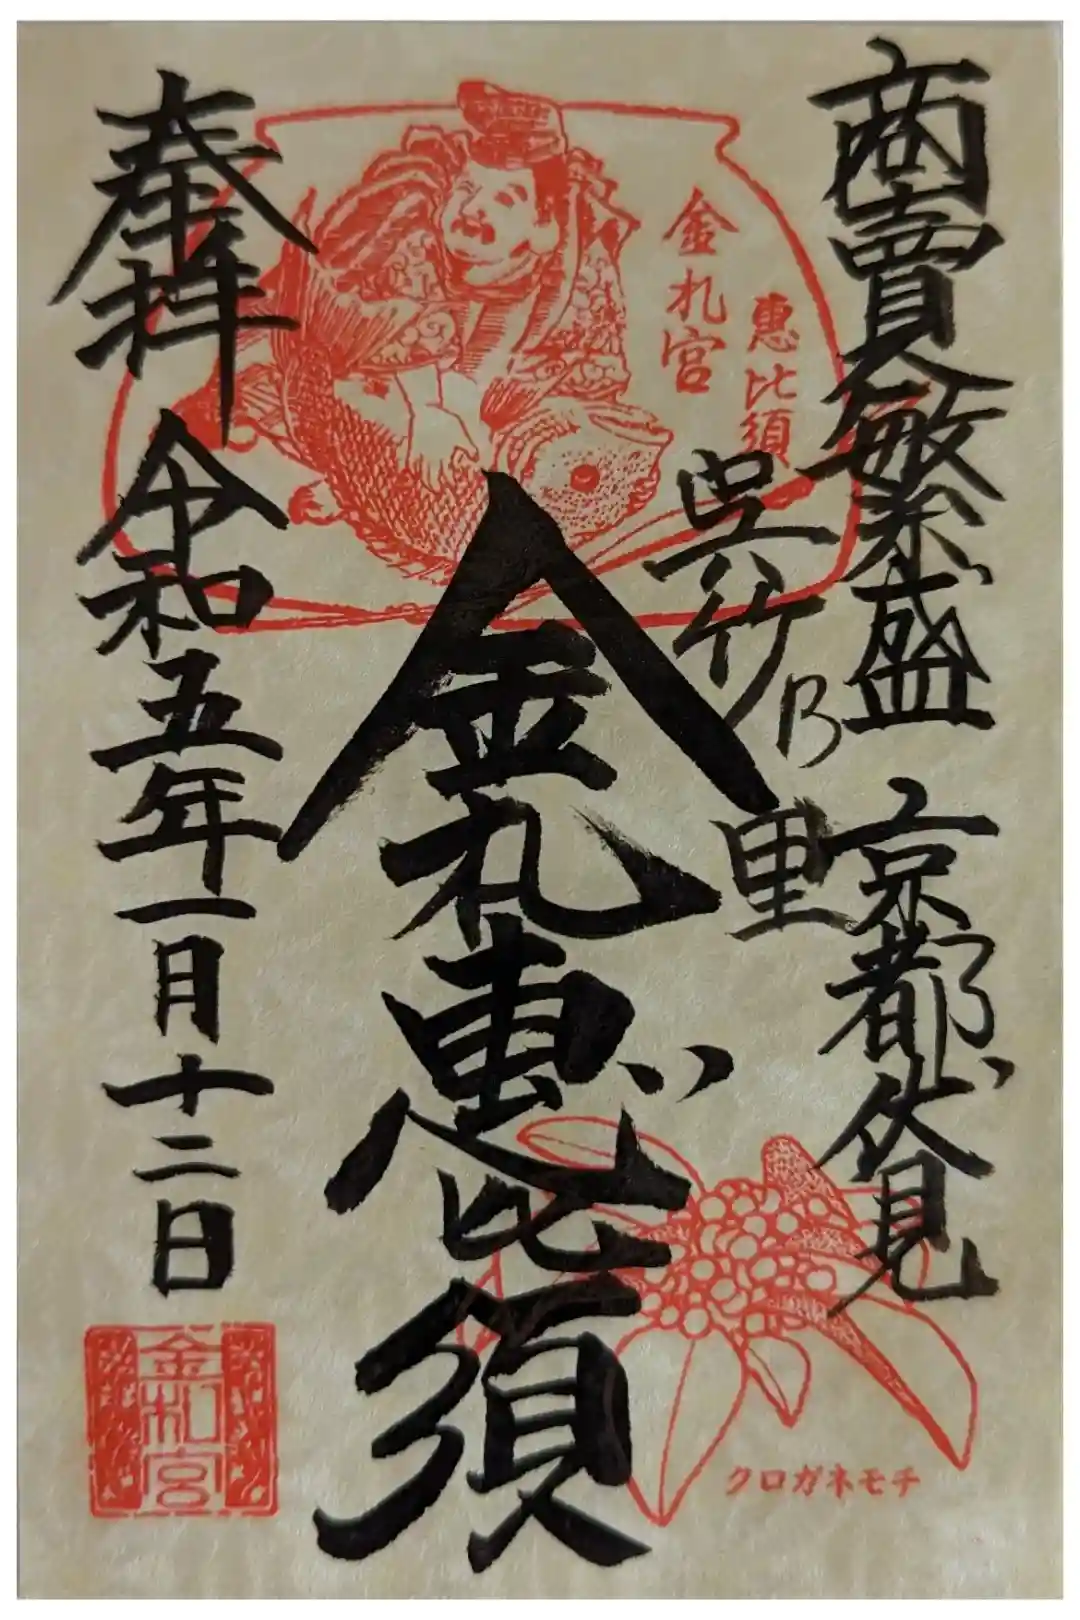 商賣繁盛 京都伏見
呉竹の里
金札宮
恵比須
金札恵比須
奉拝 令和五年一月十二日
金札宮
クロガネモチ